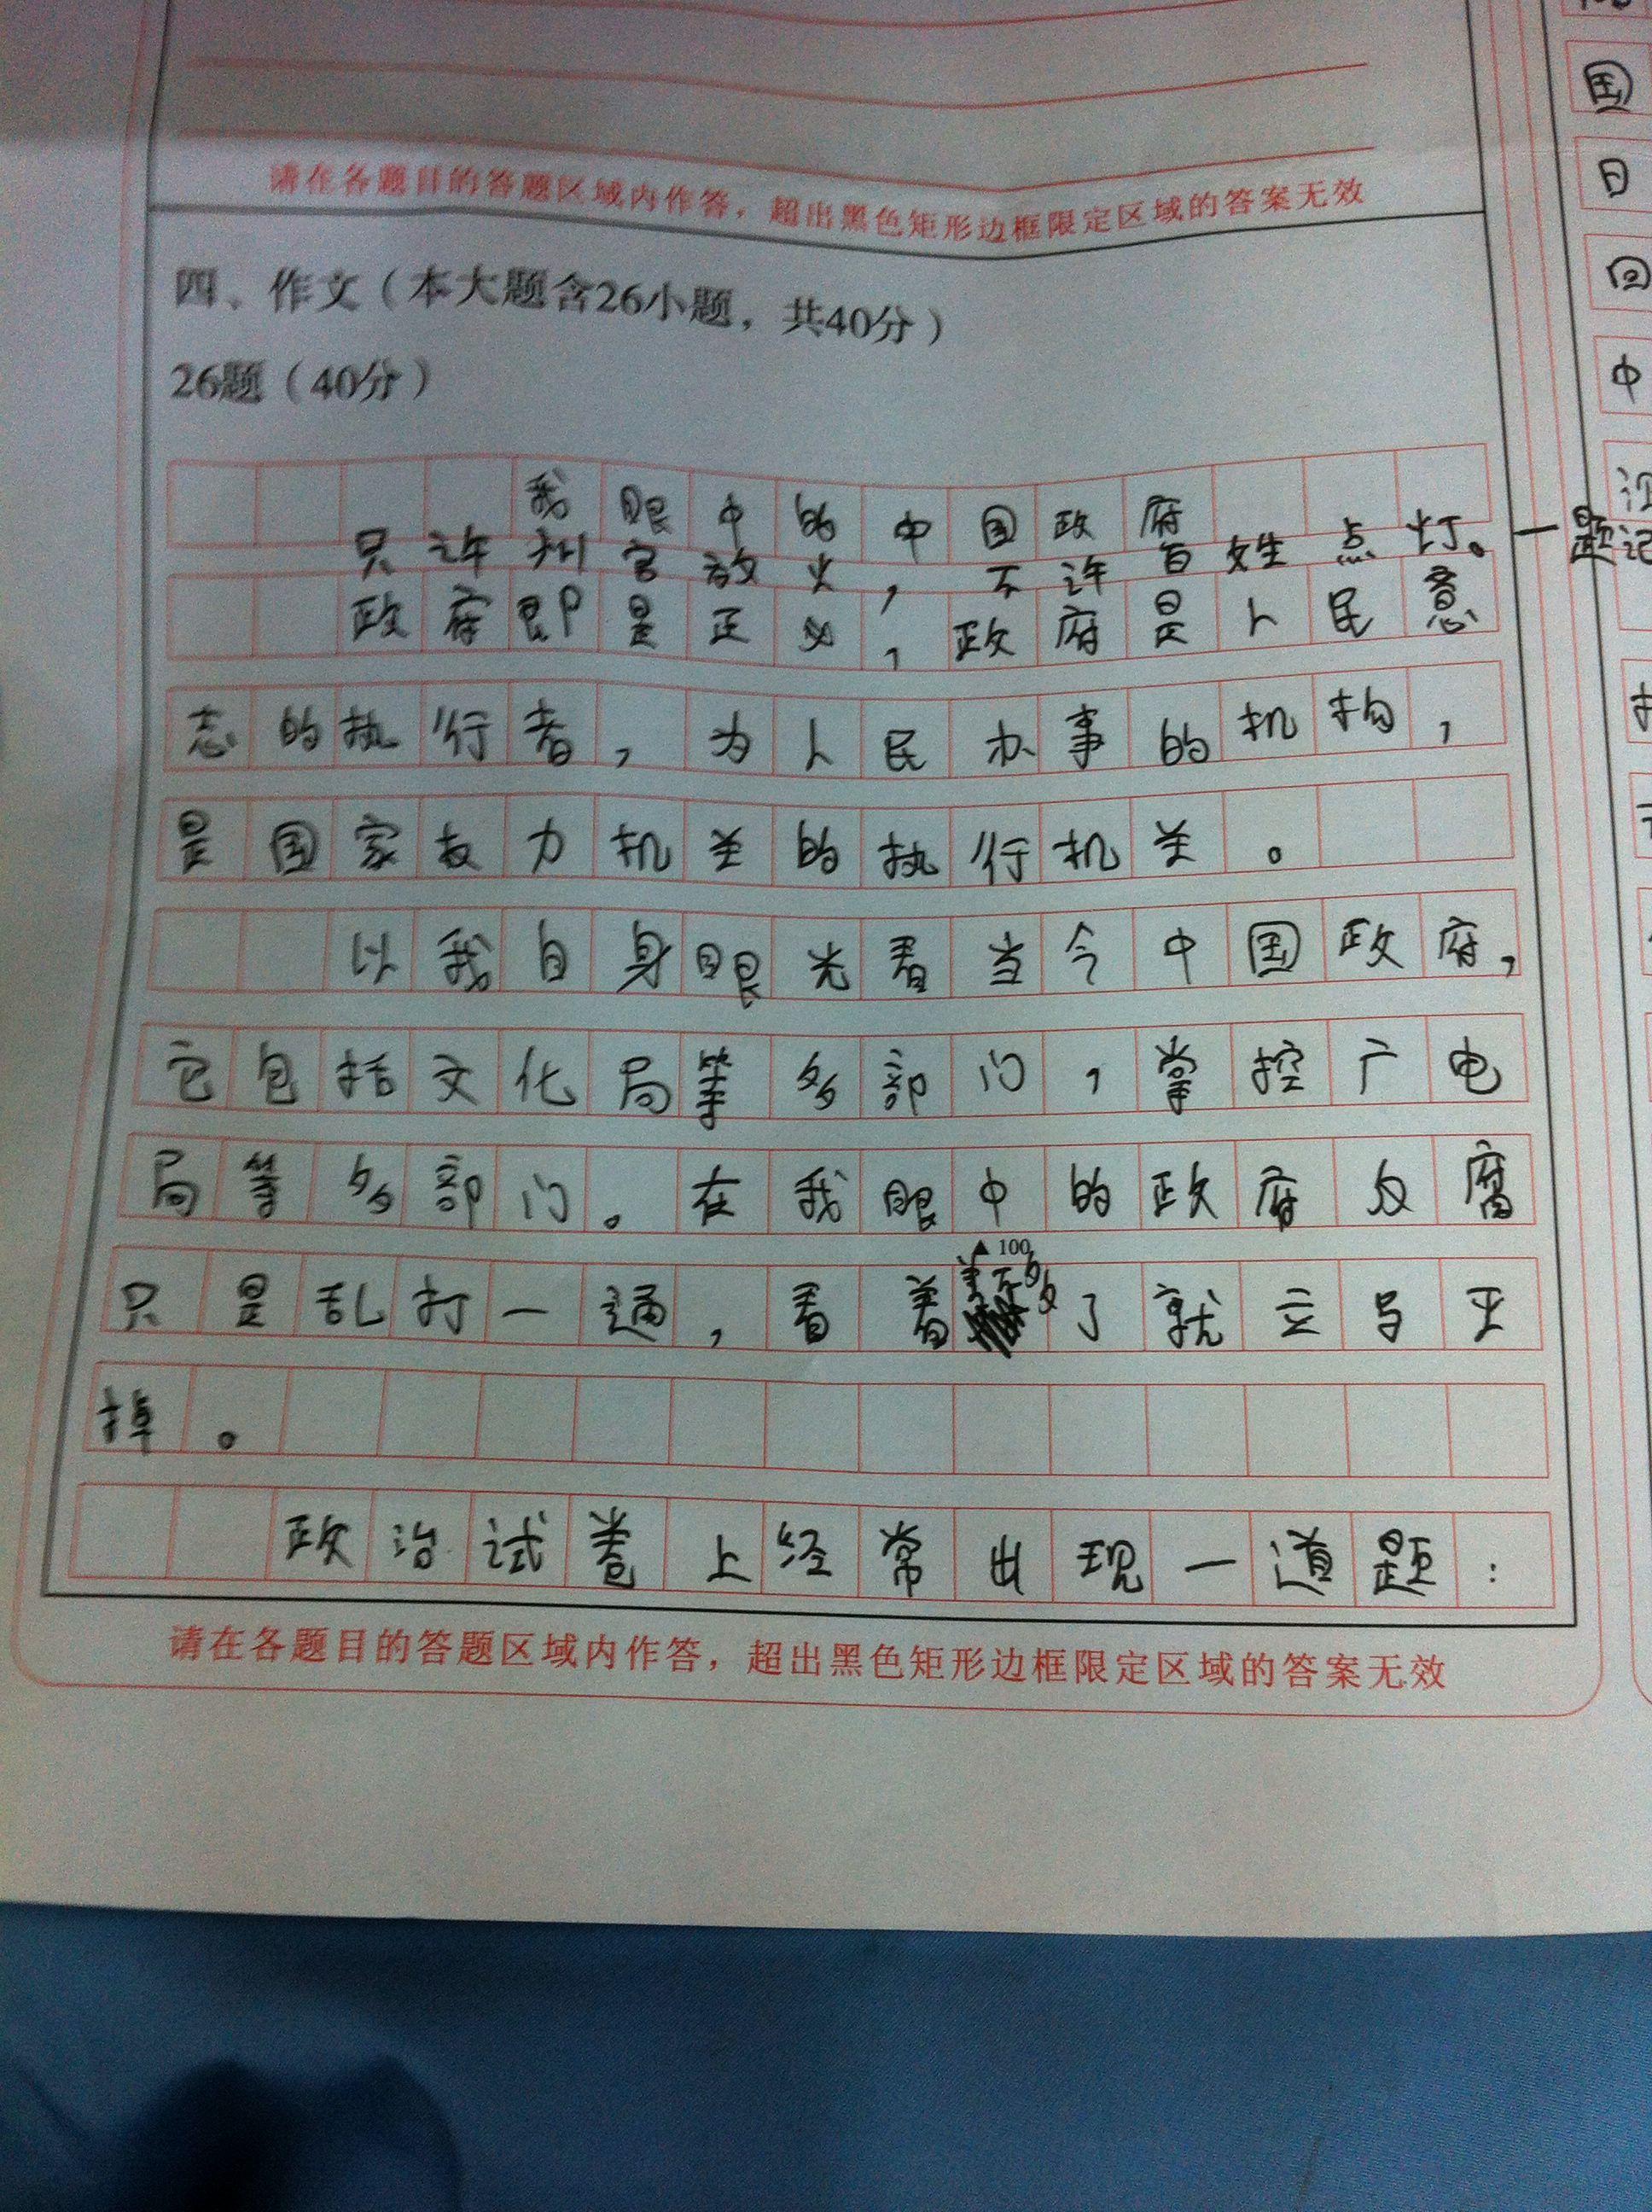 请在各题目的答题区域内作答，超出黑色矩形边框限定区域的答案无效
四、作文（本大题含26小题，共40分）
26题（40分）
我眼中的中国政府
只许州官放火，不许百姓点灯。—题记
政府即是正义，政府是人民意
志的执行者，为人民办事的机构，
是国家权力机关的执行机关。
以我自身眼光看当今中国政府，
它包括文化局等多部门，掌控广电
局等多部门。在我眼中的政府反腐
只是乱打一通，看着差不多了就立马止
▲100
掉。
政治试卷上经常出现一道题：
请在各题目的答题区域内作答，超出黑色矩形边框限定区域的答案无效
国
日
回
中